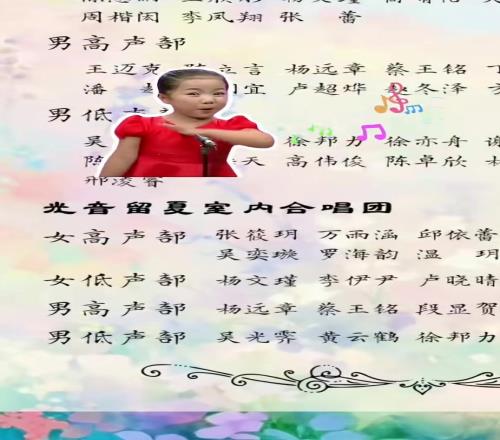 周楷闳 李凤翔 张 蕾
男高声部
王迈克 立言 杨远章 蔡王铭
潘 宜 卢超烨 冬泽
男低声部
吴 徐邦力 徐亦舟 谢
陈 天 高伟俊 陈卓欣 林
邢凌睿
光音留夏室内合唱团
女高声部 张筱玥 万雨涵 邱依蕾
吴奕璇 罗海韵 温 玥
女低声部 杨文瑾 李伊尹 卢晓晴
男高声部 杨远章 蔡王铭 段显贺
男低声部 吴光霁 黄云鹤 徐邦力